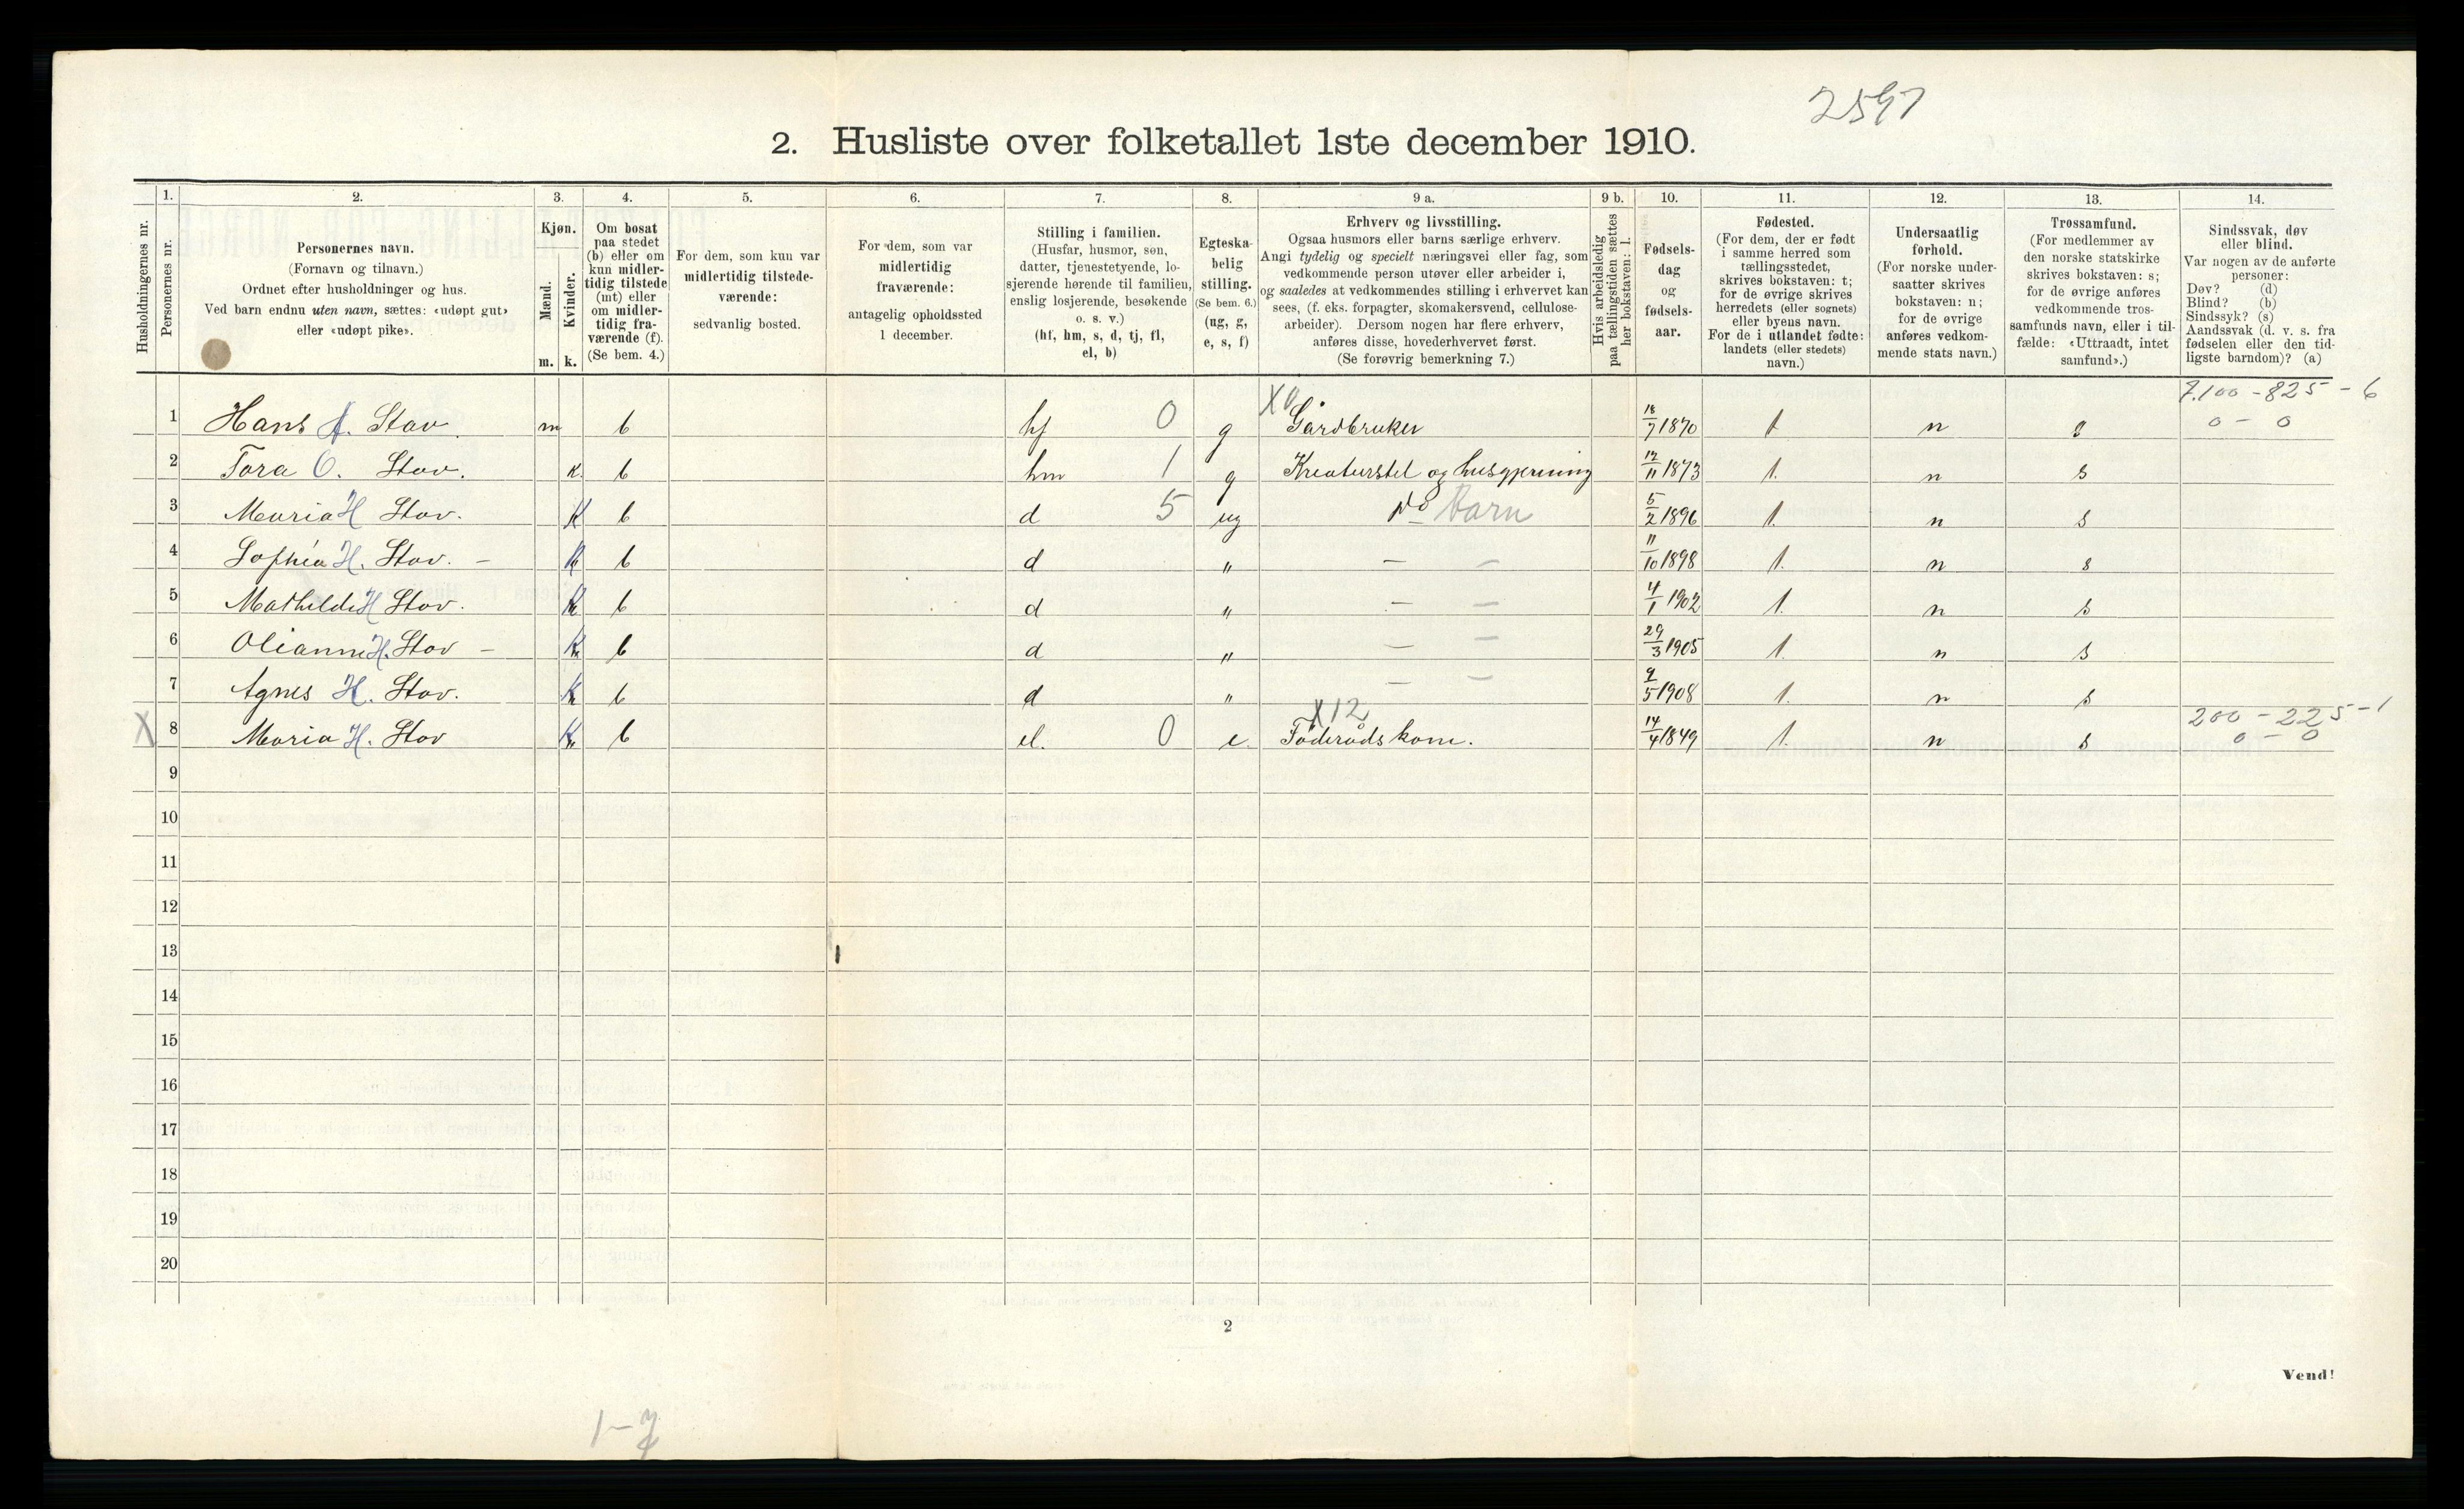 2597
2. Husliste over folketallet 1ste december 1910.
Husholdningernes nr.
1.
Personernes nr.
2.
Personernes navn.
(Fornavn og tilnavn.)
Ordnet efter husholdninger og hus.
Ved barn endnu uten navn, sættes: «udøpt gut»
eller «udøpt pike».
3.
Kjøn.
Mænd.
Kvinder.
m. k.
4.
Om bosat
paa stedet
(b) eller om
kun midler-
tidig tilstede
(mt) eller
om midler-
tidig fra-
værende (f).
(Se bem. 4.)
5.
For dem, som kun var
midlertidig tilstede-
værende:
sedvanlig bosted.
6.
For dem, som var
midlertidig
fraværende:
antagelig opholdssted
1 december.
7.
Stilling i familien.
(Husfar, husmor, søn,
datter, tjenestetyende, lo-
sjerende hørende til familien,
enslig losjerende, besøkende
o. s. v.)
(hf, hm, s, d, tj, fl,
el, b)
8.
Egteska-
belig
stilling.
(Se bem. 6.)
(ug, g,
e, s, f)
9 a.
Erhverv og livsstilling.
Ogsaa husmors eller barns særlige erhverv.
Angi tydelig og specielt næringsvei eller fag, som
vedkommende person utøver eller arbeider i,
og saaledes at vedkommendes stilling i erhvervet kan
sees, (f. eks. forpagter, skomakersvend, cellulose-
arbeider). Dersom nogen har flere erhverv,
anføres disse, hovederhvervet først.
(Se forøvrig bemerkning 7.)
9 b.
Hvis arbeidsledig
paa tællingstiden sættes
her bokstaven: l.
10.
Fødsels-
dag
og
fødsels-
aar.
11.
Fødested.
(For dem, der er født
i samme herred som
tællingsstedet,
skrives bokstaven: t;
for de øvrige skrives
herredets (eller sognets)
eller byens navn.
For de i utlandet fødte:
landets (eller stedets)
navn.)
12.
Undersaatlig
forhold.
(For norske under-
saatter skrives
bokstaven: n;
for de øvrige
anføres vedkom-
mende stats navn.)
13.
Trossamfund.
(For medlemmer av
den norske statskirke
skrives bokstaven: s;
for de øvrige anføres
vedkommende tros-
samfunds navn, eller i til-
fælde: «Uttraadt, intet
samfund».)
14.
Sindssvak, døv
eller blind.
Var nogen av de anførte
personer:
Døv? (d)
Blind? (b)
Sindssyk? (s)
Aandssvak (d. v. s. fra
fødselen eller den tid-
ligste barndom)? (a)
7.100 - 825 - 6
1 Hans A. Stav m b hf 0 g X0 Gårdbruker 18/7 1870 t n s 0 - 0
2 Tora O. Stav. k b hm 1 g Kreaturstel og husgjerning 12/11 1873 t. n s
3 Maria H Stav. K b d 5 ug do Barn 5/2 1896 t. n s
4 Sophia H. Stav. - k b d " — — 11/10 1898 t. n s
5 Mathilde H Stav. k b d " — — 4/1 1902 t. n s
6 Olianne H. Stav - k b d " — — 29/3 1905 t. n s
7 Agnes H. Stav. k b d " — — 9/5 1908 t. n s
X 8 Maria H. Stav k b el. 0 e. X12 Föderådskone. 14/4 1849 t. n s 200 - 225 - 1
0 - 0
9
10
11
12
13
14
15
16
17
18
19
20
2
Vend!
1-7